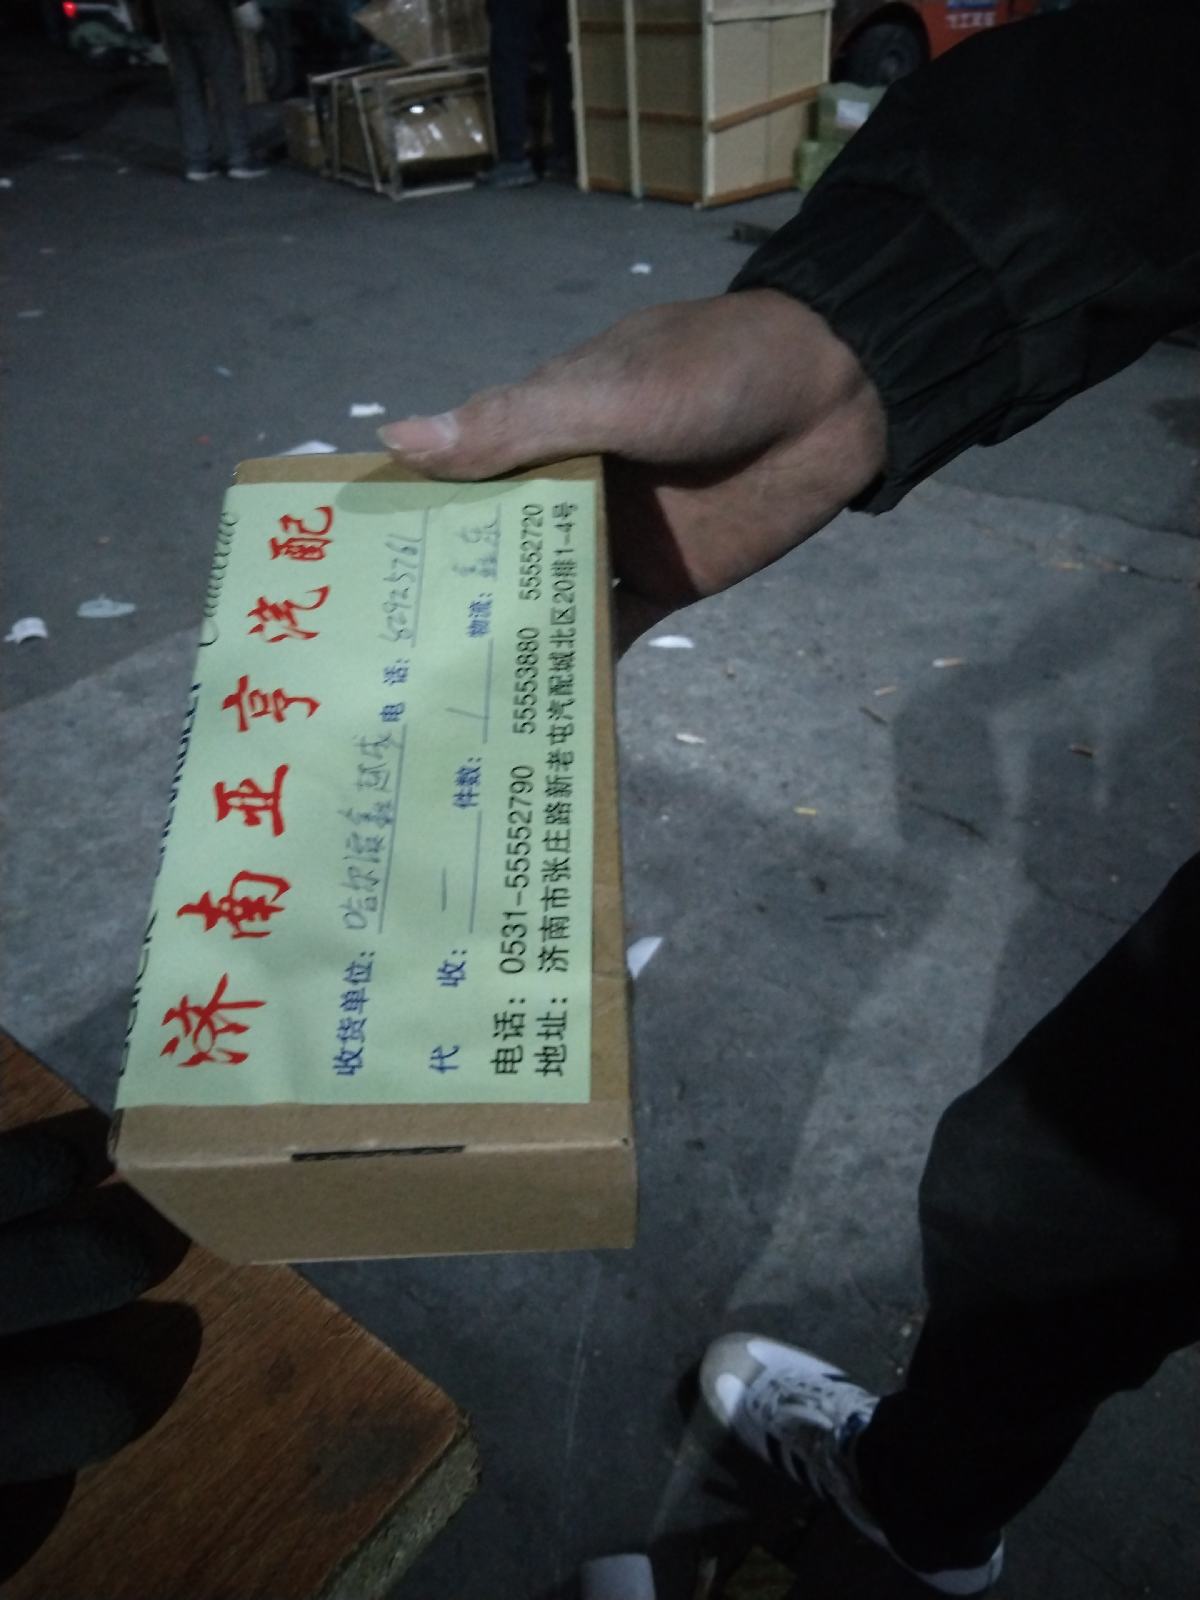 济南亚亨汽配
收货单位: 哈尔滨鑫越成 电 话: 82925761
代 收: 一 件数: 1 物流: 鑫东
电话: 0531-55552790 55553880 55552720
地址: 济南市张庄路新老屯汽配城北区20排1-4号